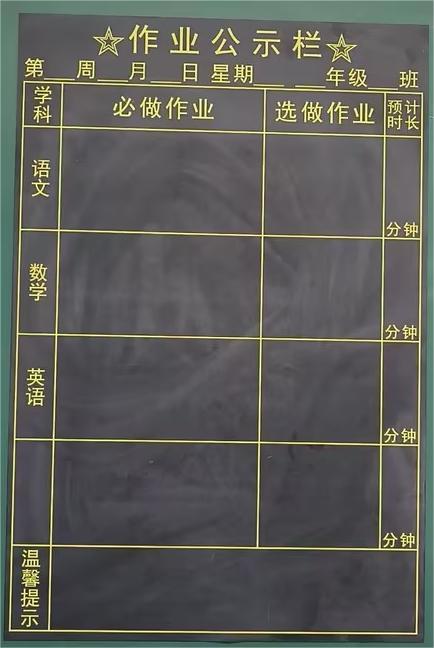 ☆作业公示栏☆
第__周__月__日 星期__ __年级__班
学科 必做作业 选做作业 预计时长
语文 分钟
数学 分钟
英语 分钟
分钟
温馨提示